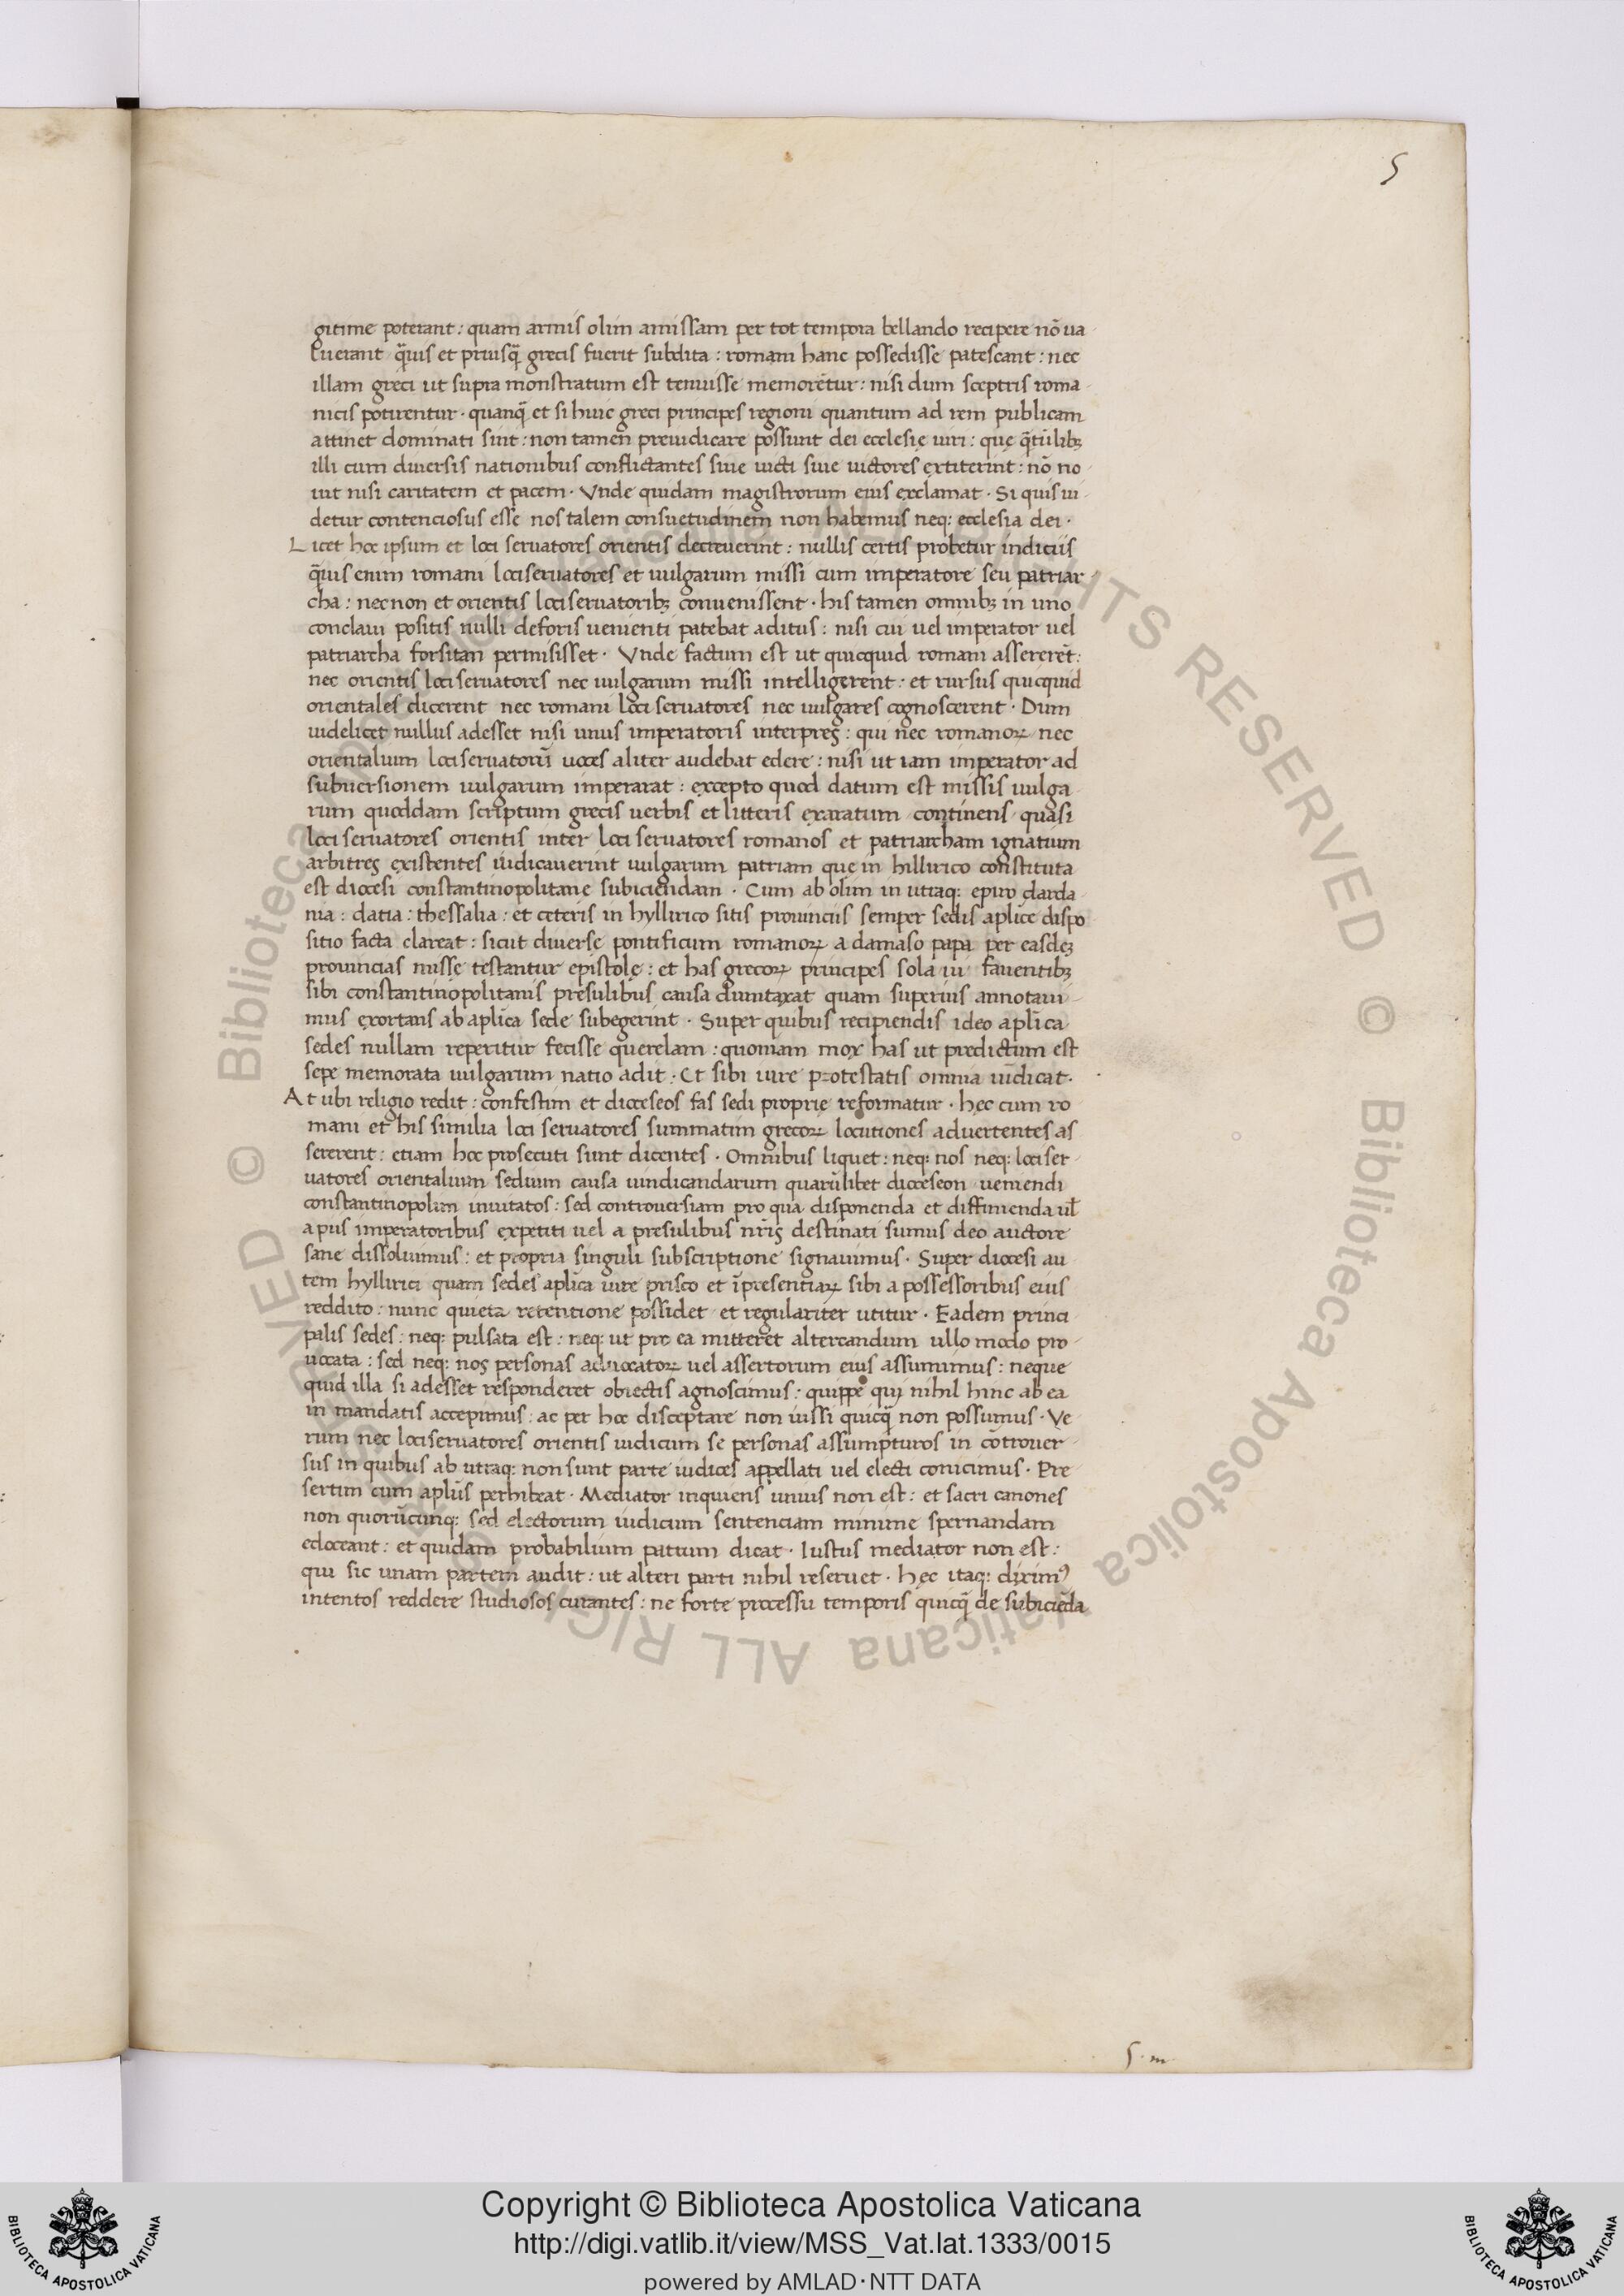 5
gitime poterant : quam armis olim amissam per tot tempora bellando recipere nō ua
luerant q̄uis et priusq̄ grecis fuerit subdita : romam hanc possedisse patescant : nec
illam greci ut supra monstratum est tenuisse memorētur : nisi dum sceptris roma
nicis potirentur · quanq̄ et si huic greci principes regioni quantum ad rem publicam
attinet dominati sint : non tamen preiudicare possunt dei ecclesię uiri : que q̄tūlibꝫ
illi cum diuersis nationibus conflictantes siue uicti siue uictores extiterint : nō no
uit nisi caritatem et pacem · Vnde quidam magistrorum eius exclamat · Si quis ui
detur contenciosus esse nos talem consuetudinem non habemus neq: ecclesia dei ·
Licet hoc ipsum et loci seruatores orientis decreuerint : nullis certis probetur indiciis
q̄uis enim romani lociseruatores et uulgarum missi cum imperatore seu patriar
cha : necnon et orientis lociseruatoribꝫ conuenissent · his tamen omnibꝫ in uno
conclaui positis nulli deforis uenienti patebat aditus : nisi cui uel imperator uel
patriarcha forsitan permisisset · Vnde factum est ut quicquid romani assererēt :
nec orientis lociseruatores nec uulgarum missi intelligerent : et rursus quicquid
orientales dicerent nec romani loci seruatores nec uulgares cognoscerent · Dum
uidelicet nullus adesset nisi unus imperatoris interpres : qui nec romanoꝝ nec
orientalium lociseruatorū uoces aliter audebat edere : nisi ut iam imperator ad
subuersionem uulgarum imperarat : excepto quod datum est missis uulga
rum quoddam scriptum grecis uerbis et litteris exaratum continens quasi
loci seruatores orientis inter loci seruatores romanos et patriarcham ignatium
arbitres existentes iudicauerint uulgarum patriam que in hillirico constituta
est diocesi constantinopolitane subiciendam · Cum ab olim in utraq: epiro darda
nia : datia : thessalia : et ceteris in hyllirico sitis prouinciis semper sedis aplice dispo
sitio facta clareat : sicut diuerse pontificum romanoꝝ a damaso papa per easdeꝫ
prouincias misse testantur epistolę : et has grecoꝝ principes sola ui fauentibꝫ
sibi constantinopolitanis presulibus causa dumtaxat quam superius annotaui
mus exortans ab aplica sede subegerint · Super quibus recipiendis ideo aplica
sedes nullam reperitur fecisse querelam : quoniam mox has ut predictum est
sepe memorata uulgarum natio adit · Et sibi iure potestatis omnia uīdicat ·
At ubi religio redit : confestim et dioceseos fas sedi proprie reformatur · hęc cum ro
mani et his similia loci seruatores summatim grecoꝝ locutiones aduertentes as
sererent : etiam hoc prosecuti sunt dicentes · Omnibus liquet : neq: nos neq: lociser
uatores orientalium sedium causa uindicandarum quarūlibet dioceseon uemendi
constantinopolim inuitatos : sed controuersiam pro qua disponenda et diffinienda ul̄
a piis imperatoribus expetiti uel a presulibus nr̄is destinati sumus deo auctore
sane dissoluimus : et propria singuli subscriptione signauimus · Super diocesi au
tem hyllirici quam sedes aplica iure prisco et īpresentiaꝝ sibi a possessoribus eius
reddito : nunc quieta retentione possidet et regulariter utitur · Eadem princi
palis sedes : neq: pulsata est : neq: ut pro ea mitteret altercandum ullo modo pro
uocata : sed neq: nos personas aduocatoꝝ uel assertorum eius assumimus : neque
quid illa si adesset responderet obiectis agnoscimus : quippe qui nihil hinc ab ea
in mandatis accepimus : ac per hoc disceptare non iussi quicq̄ non possumus · Ve
rum nec lociseruatores orientis iudicum se personas assumpturos in cōtrouer
sus in quibus ab utraq: non sunt parte iudices appellati uel electi conicimus · Pre
sertim cum aplūs perhibeat · Mediator inquiens unius non est : et sacri canones
non quorūcunq: sed electorum iudicum sentenciam minime spernandam
edoceant : et quidam probabilium patrum dicat · Iustus mediator non est :
qui sic unam partem audit : ut alteri parti nihil reseruet · hęc itaq: diximꝰ
intentos reddere studiosos curantes : ne forte processu temporis quicq̄ de subiciēda
Copyright © Biblioteca Apostolica Vaticana
http://digi.vatlib.it/view/MSS_Vat.lat.1333/0015
powered by AMLAD·NTT DATA
BIBLIOTECA APOSTOLICA VATICANA
BIBLIOTECA APOSTOLICA VATICANA
© Biblioteca Apostolica Vaticana ALL RIGHTS RESERVED
© Biblioteca Apostolica Vaticana ALL RIGHTS RESERVED